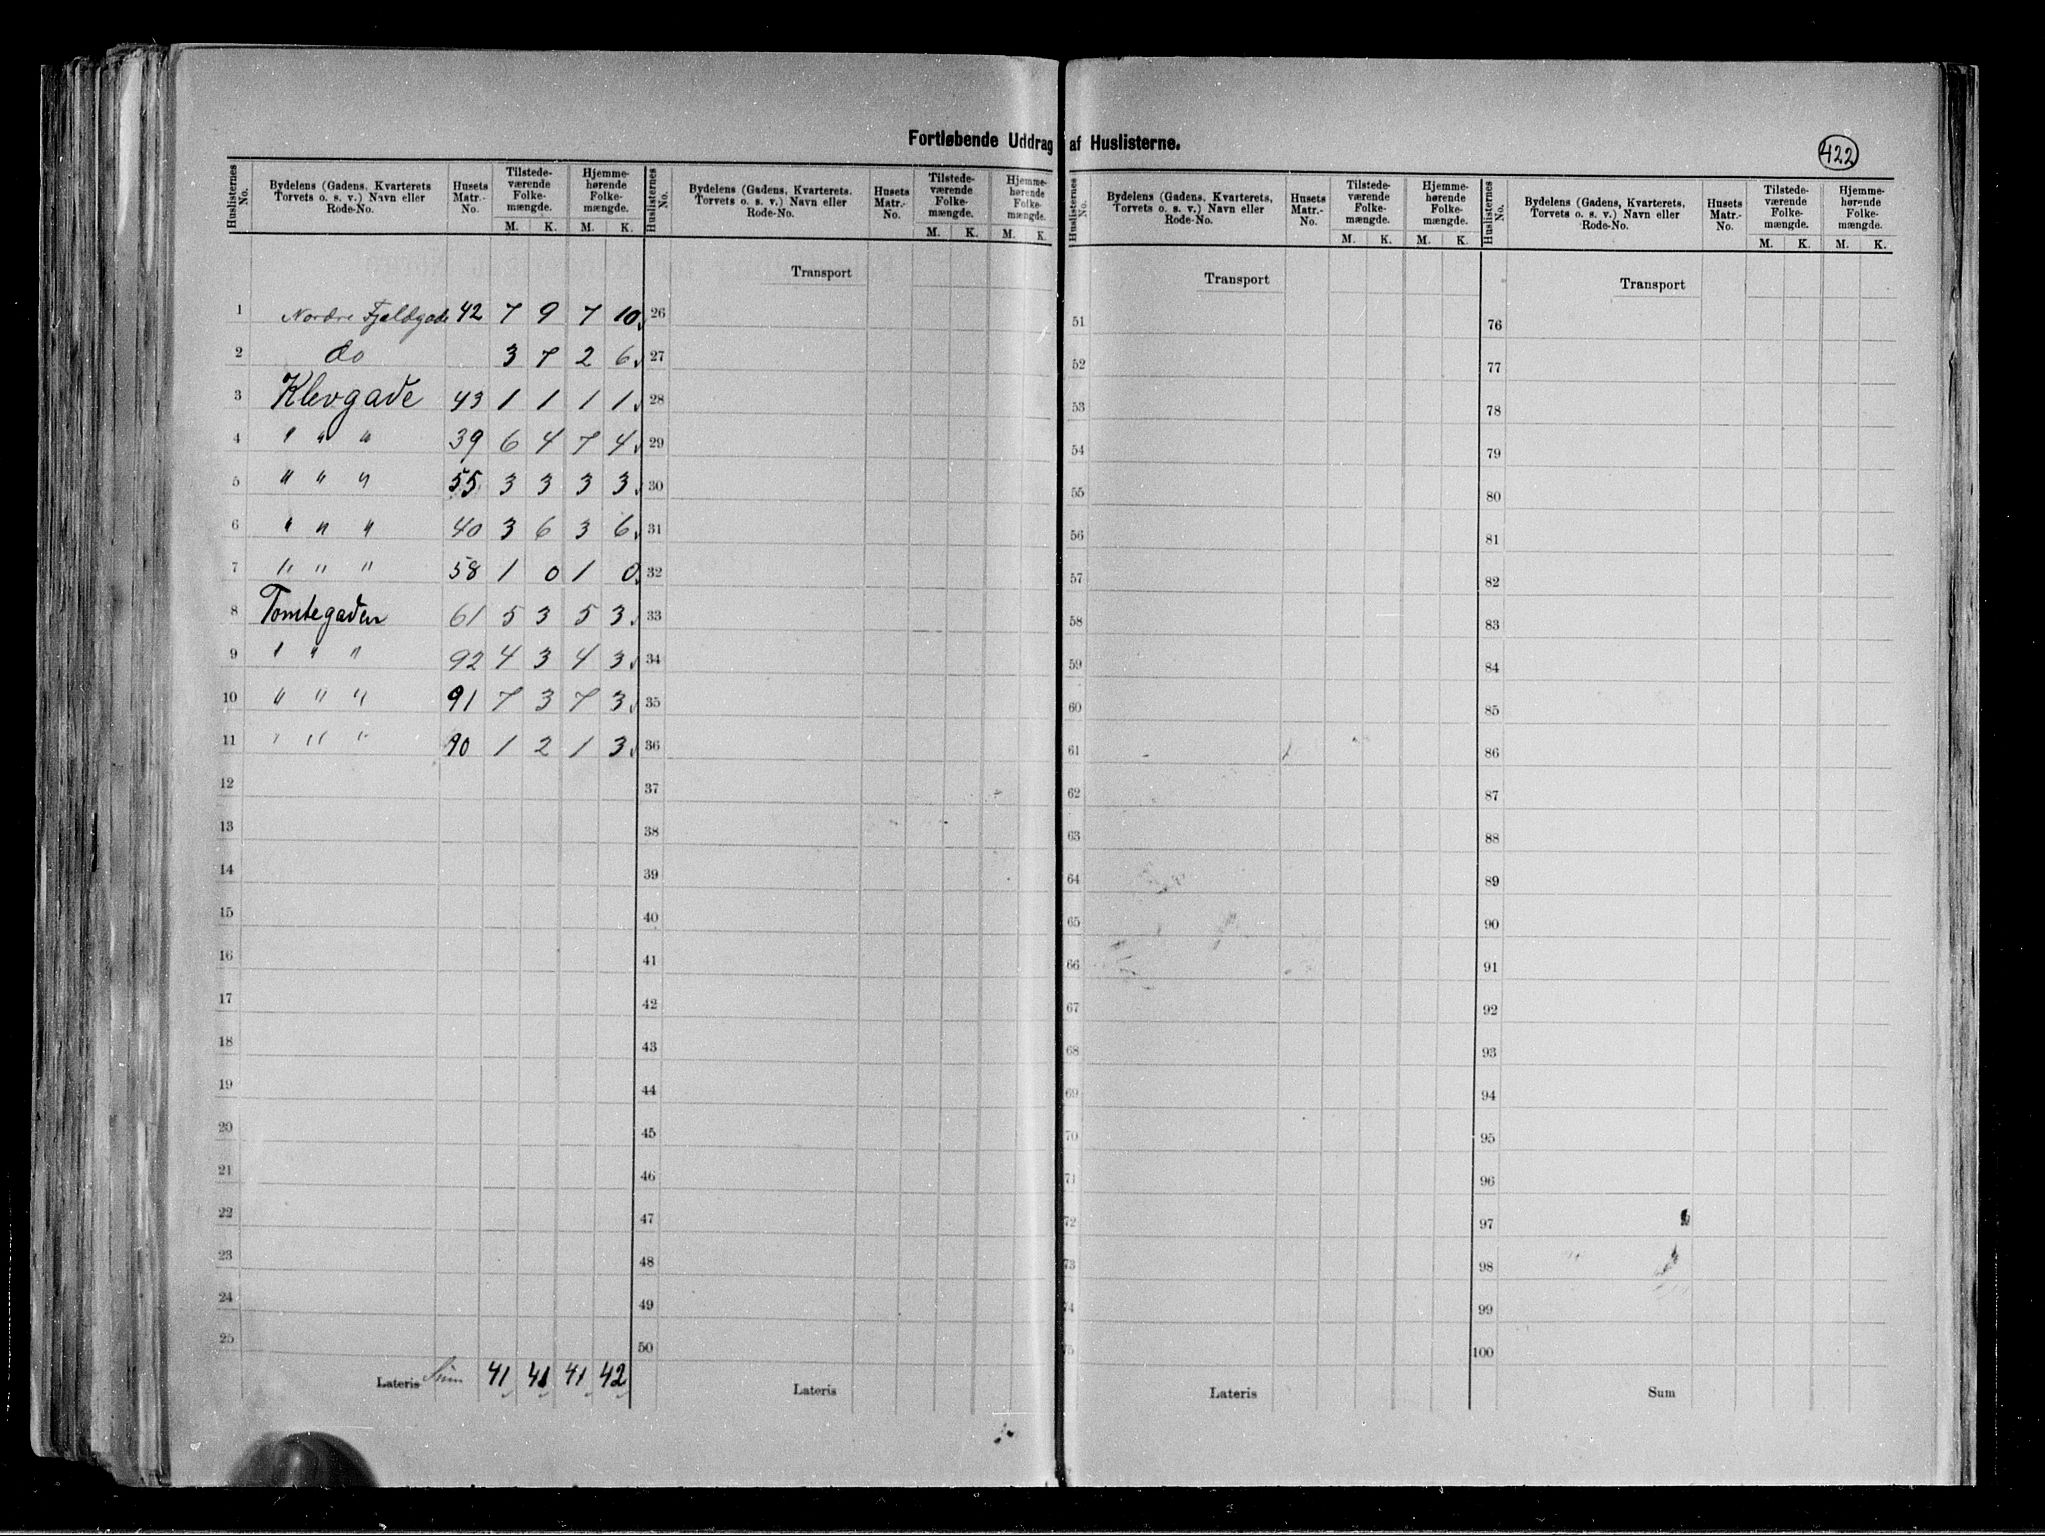 Fortløbende Uddrag af Huslisterne.
422
Huslisternes No. | Bydelens (Gadens, Kvarterets Torvets o. s. v.) Navn eller Rode-No. | Husets Matr.-No. | Tilstedeværende Folkemængde. M. K. | Hjemmehørende Folkemængde. M. K.
1 Nordre Fjeldgade 42 7 9 7 10
2 do 3 7 2 6
3 Klevgade 43 1 1 1 1
4 " " " 39 6 4 7 4
5 " " " 55 3 3 3 3
6 " " " 40 3 6 3 6
7 " " " 58 1 0 1 0
8 Tomtegaden 61 5 3 5 3
9 " " " 92 4 3 4 3
10 " " " 91 7 3 7 3
11 " " " 90 1 2 1 3
12
13
14
15
16
17
18
19
20
21
22
23
24
25
Lateris Sum 41 41 41 42
Huslisternes No. | Bydelens (Gadens, Kvarterets. Torvets o. s. v.) Navn eller Rode-No. | Husets Matr.-No. | Tilstedeværende Folkemængde. M. K. | Hjemmehørende Folkemængde. M. K.
Transport
26
27
28
29
30
31
32
33
34
35
36
37
38
39
40
41
42
43
44
45
46
47
48
49
50
Lateris
Huslisternes No. | Bydelens (Gadens, Kvarterets, Torvets o. s. v.) Navn eller Rode-No. | Husets Matr.-No. | Tilstedeværende Folkemængde. M. K. | Hjemmehørende Folkemængde. M. K.
Transport
51
52
53
54
55
56
57
58
59
60
61
62
63
64
65
66
67
68
69
70
71
72
73
74
75
Lateris
Huslisternes No. | Bydelens (Gadens, Kvarterets, Torvets o. s. v.) Navn eller Rode-No. | Husets Matr.-No. | Tilstedeværende Folkemængde. M. K. | Hjemmehørende Folkemængde. M. K.
Transport
76
77
78
79
80
81
82
83
84
85
86
87
88
89
90
91
92
93
94
95
96
97
98
99
100
Sum